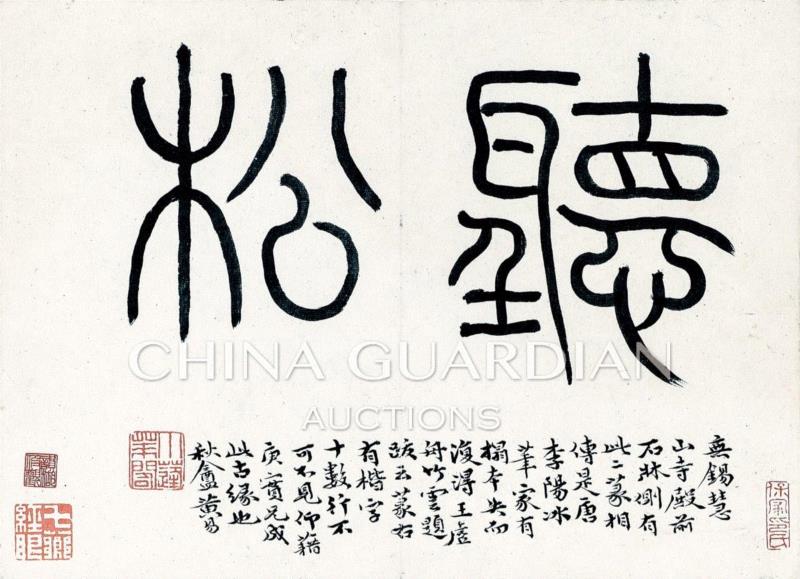 聽松
無錫慧
山寺殿前
石牀側有
此二篆相
傳是唐
李陽冰
筆家有
搨本失而
復得王虛
舟竹雲題
跋云篆右
有楷字
十數行不
可不見仰籍
庚寅兄成
此古緣也
秋盦黃易
小蓬萊閣
七薌經眼
CHINA GUARDIAN
AUCTIONS